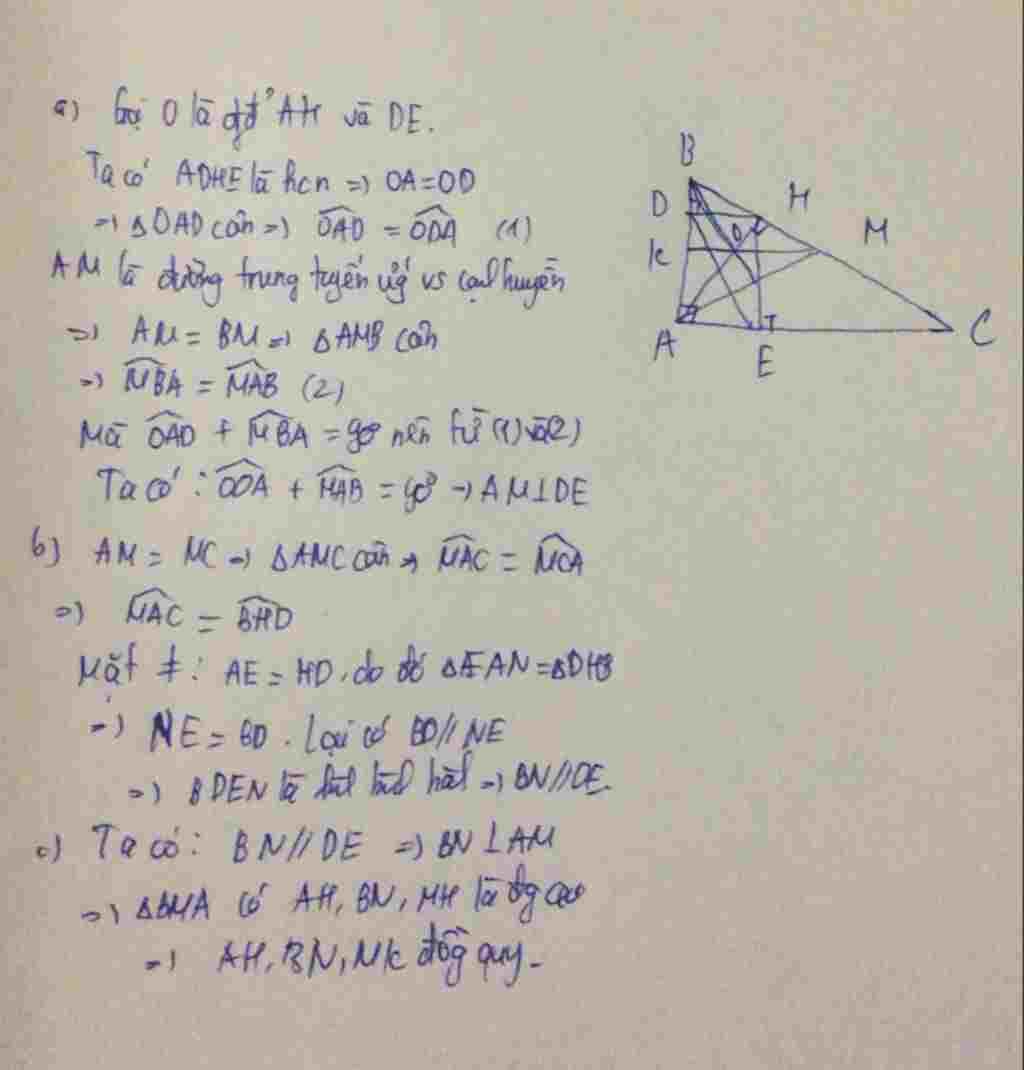 a) Gọi O là gđ² AH và DE.
Ta có ADHE là hcn => OA=OD
=> ΔOAD cân => OAD = ODA (1)
AM là đường trung tuyến ứg vs cạnh huyền
=> AM = BM => ΔAMB cân
=> MBA = MAB (2)
Mà OAD + MBA = 90° nên từ (1) và (2)
Ta có: ODA + MAB = 90° → AM⊥DE
b) AM = MC => ΔAMC cân => MAC = MCA
=> MAC = BHD
Mặt ≠: AE = HD. do đó ΔEAN=ΔDHB
=> NE = BD. Lại có BD//NE
=> BDEN là hìh bìh hàh => BN//DE.
c) Ta có: BN//DE => BN⊥AM
=> ΔBMA có AH, BN, MH là đg cao
=> AH, BN, MK đồg quy.
B
D
H
M
K
O
A
E
C